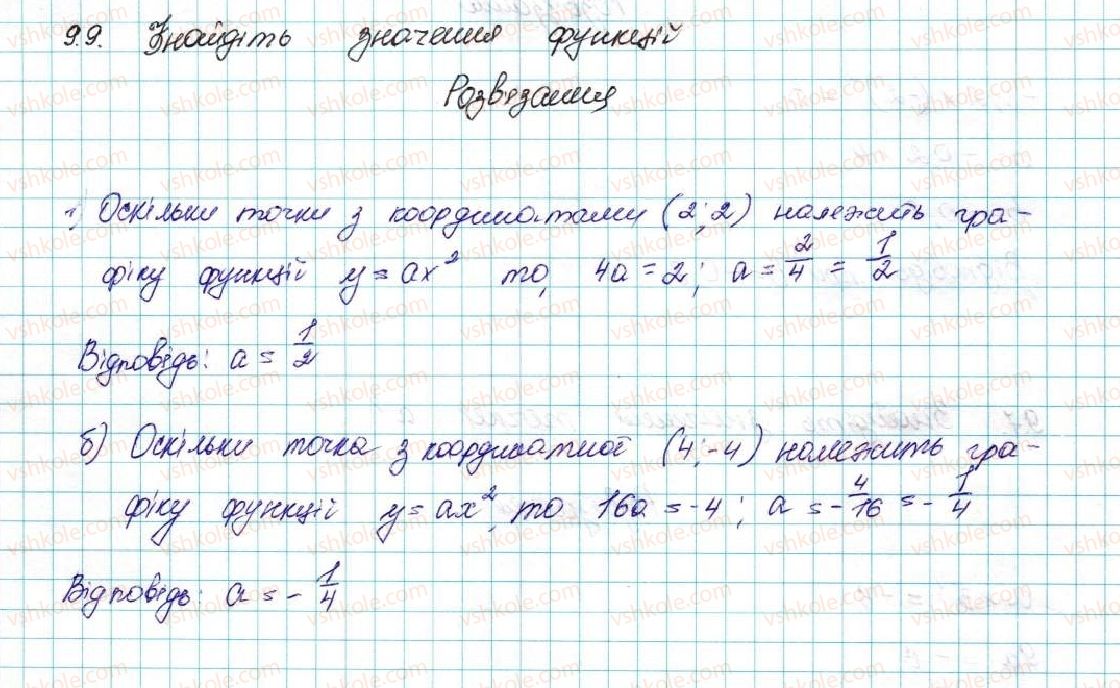 9.9. Знайдіть значення функцій
Розв'язання
а) Оскільки точки з координатами (2;2) належить гра-
фіку функцій y = ax² то, 4a = 2; a = 2/4 = 1/2
Відповідь: a = 1/2
б) Оскільки точка з координатної (4;-4) належить гра-
фіку функцій y = ax², то 16a = -4; a = -4/16 = -1/4
Відповідь: a = -1/4